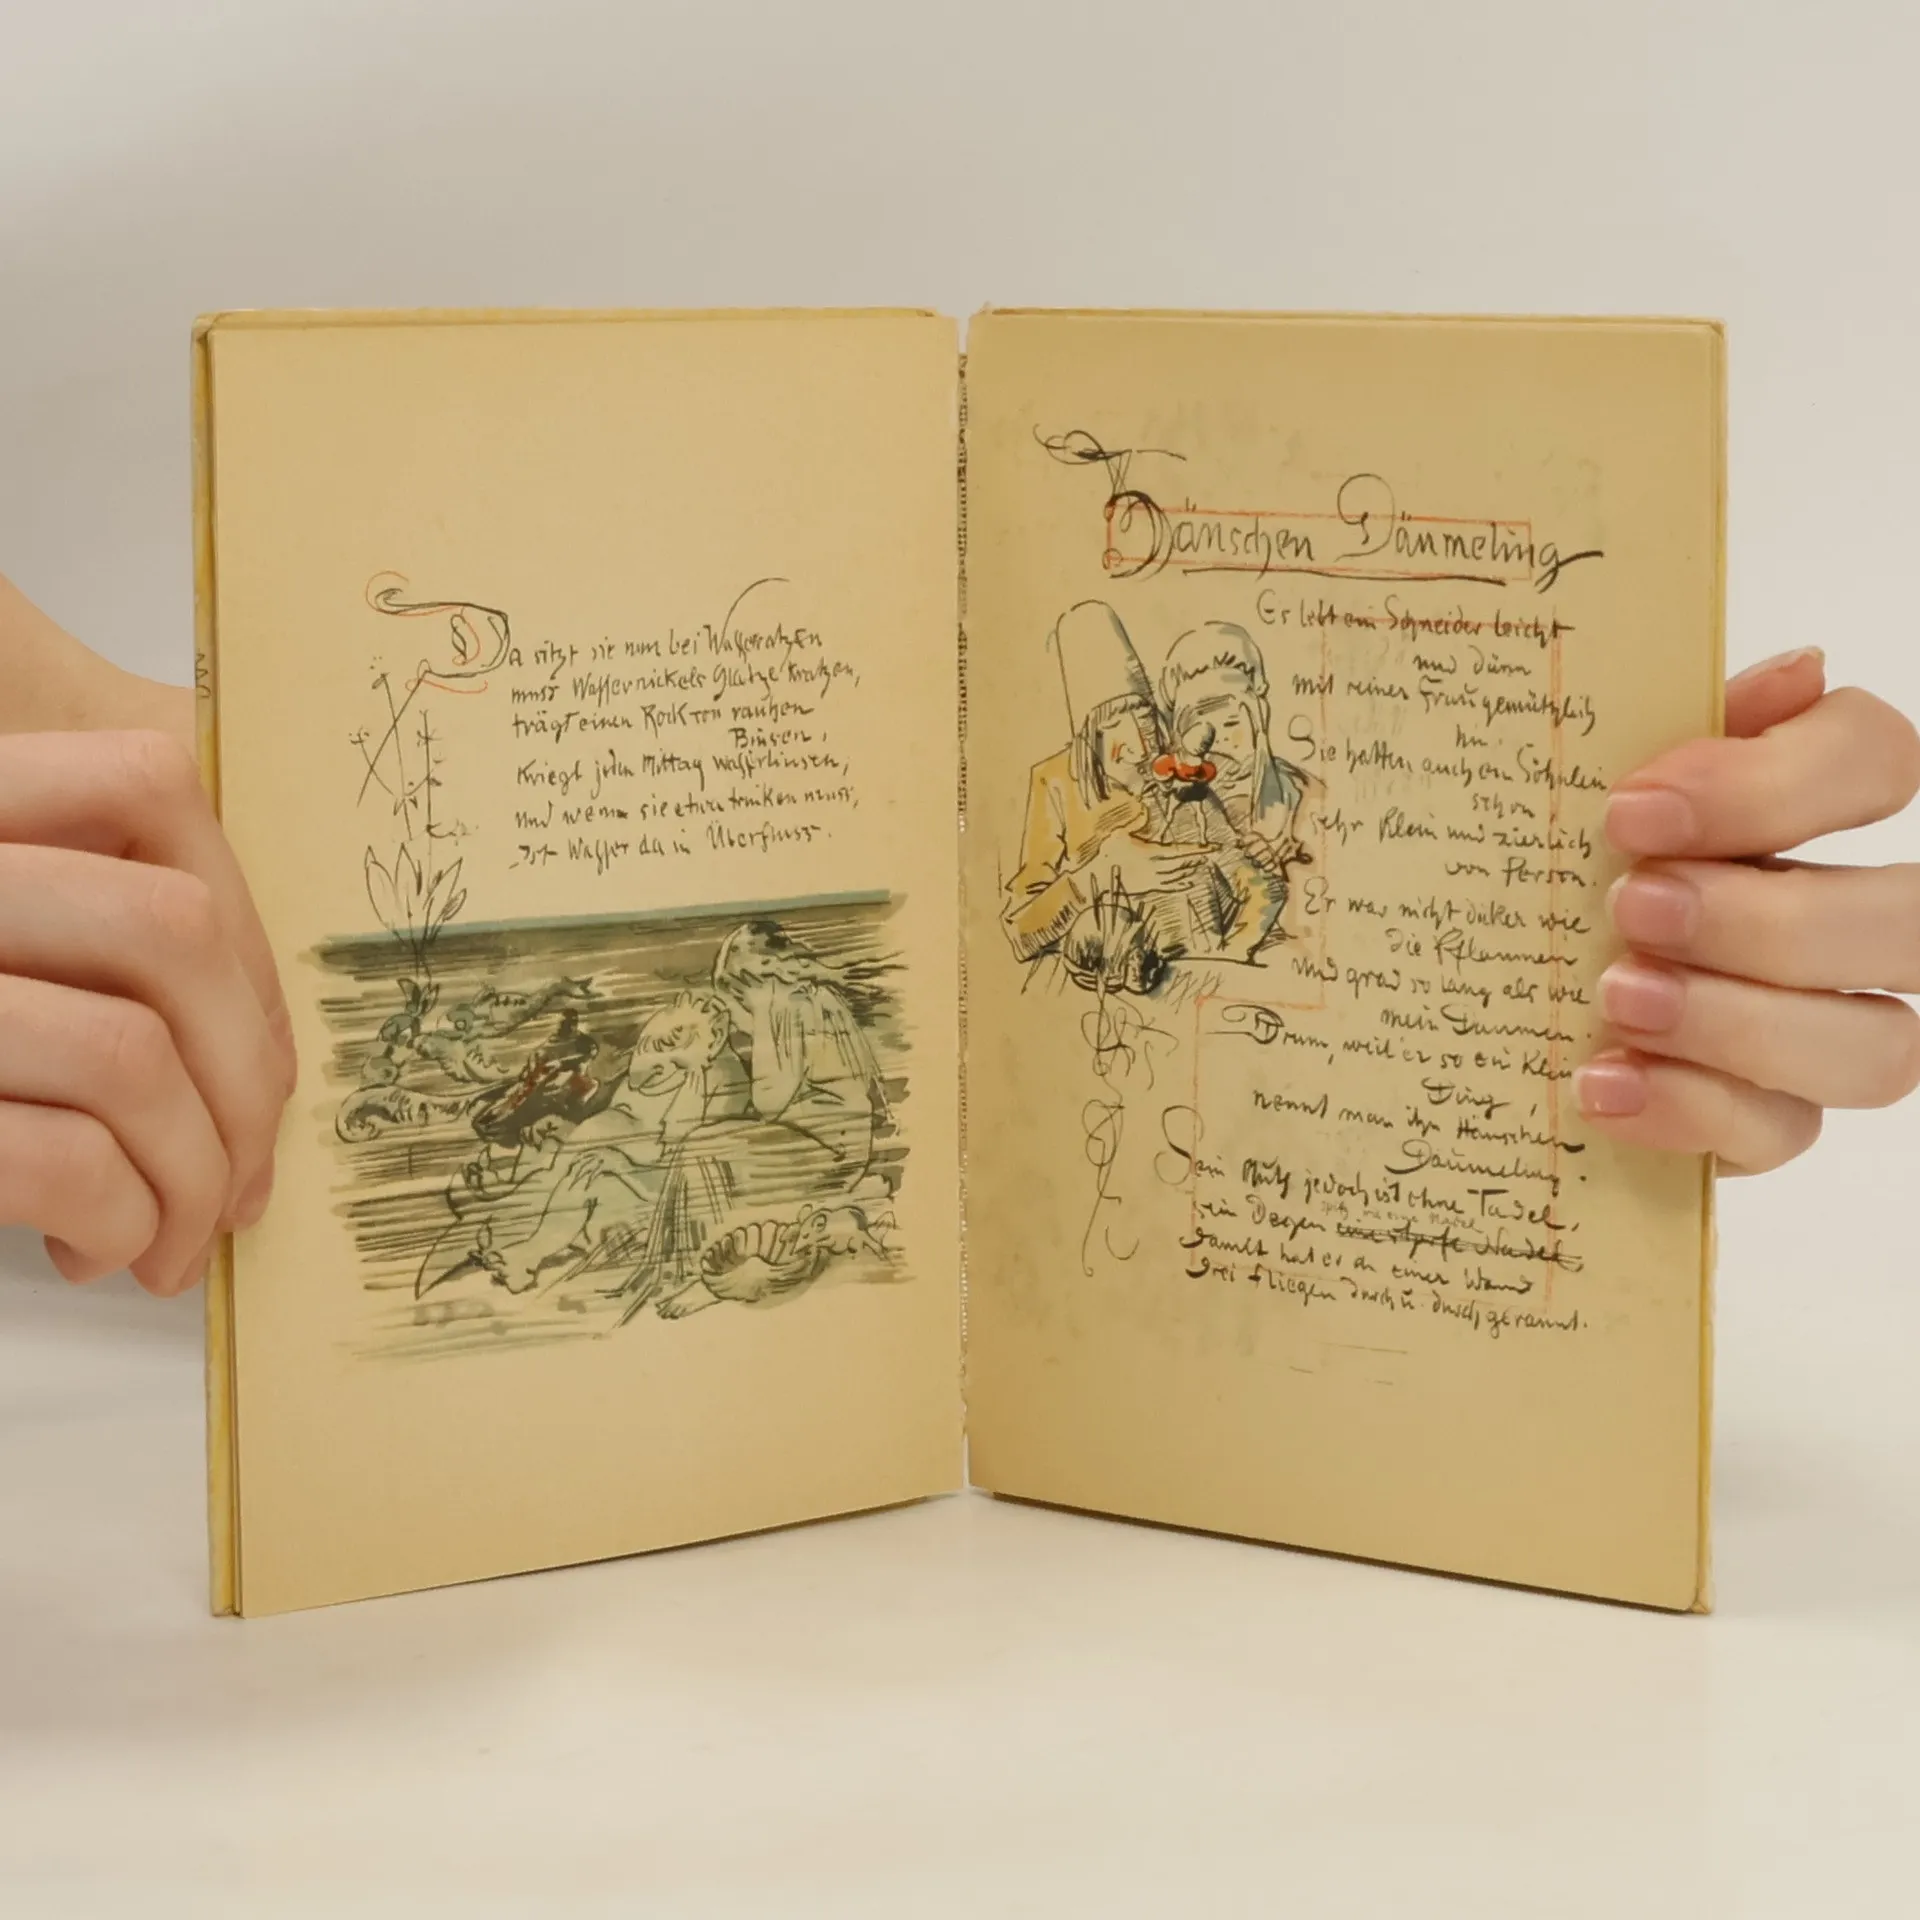 Da sitzt sie nun bei Wasserratzen
muss Wassernickels Glatze kratzen,
trägt einen Rock von rauhen
Binsen,
kriegt jeden Mittag Wasserlinsen,
und wenn sie etwa trinken muss,
Ist Wasser da in Überfluss.
Dänschen Däumeling
Es lebt ein Schneider leicht
und dünn
mit seiner Frau gemützlich
hin.
Sie hatten auch ein Söhnlein
schon
sehr klein und zierlich
von Person.
Er war nicht dicker wie
die Pflaumen
und grad so lang als wie
mein Daumen.
Drum, weil er so ein klein
Ding,
nennt man ihn Hänschen
Däumeling.
Sein Mut jedoch ist ohne Tadel,
spitz wie eine Nadel
sein Degen eine spitze Nadel,
damit hat er an einer Wand
drei Fliegen durch u. durch gerannt.